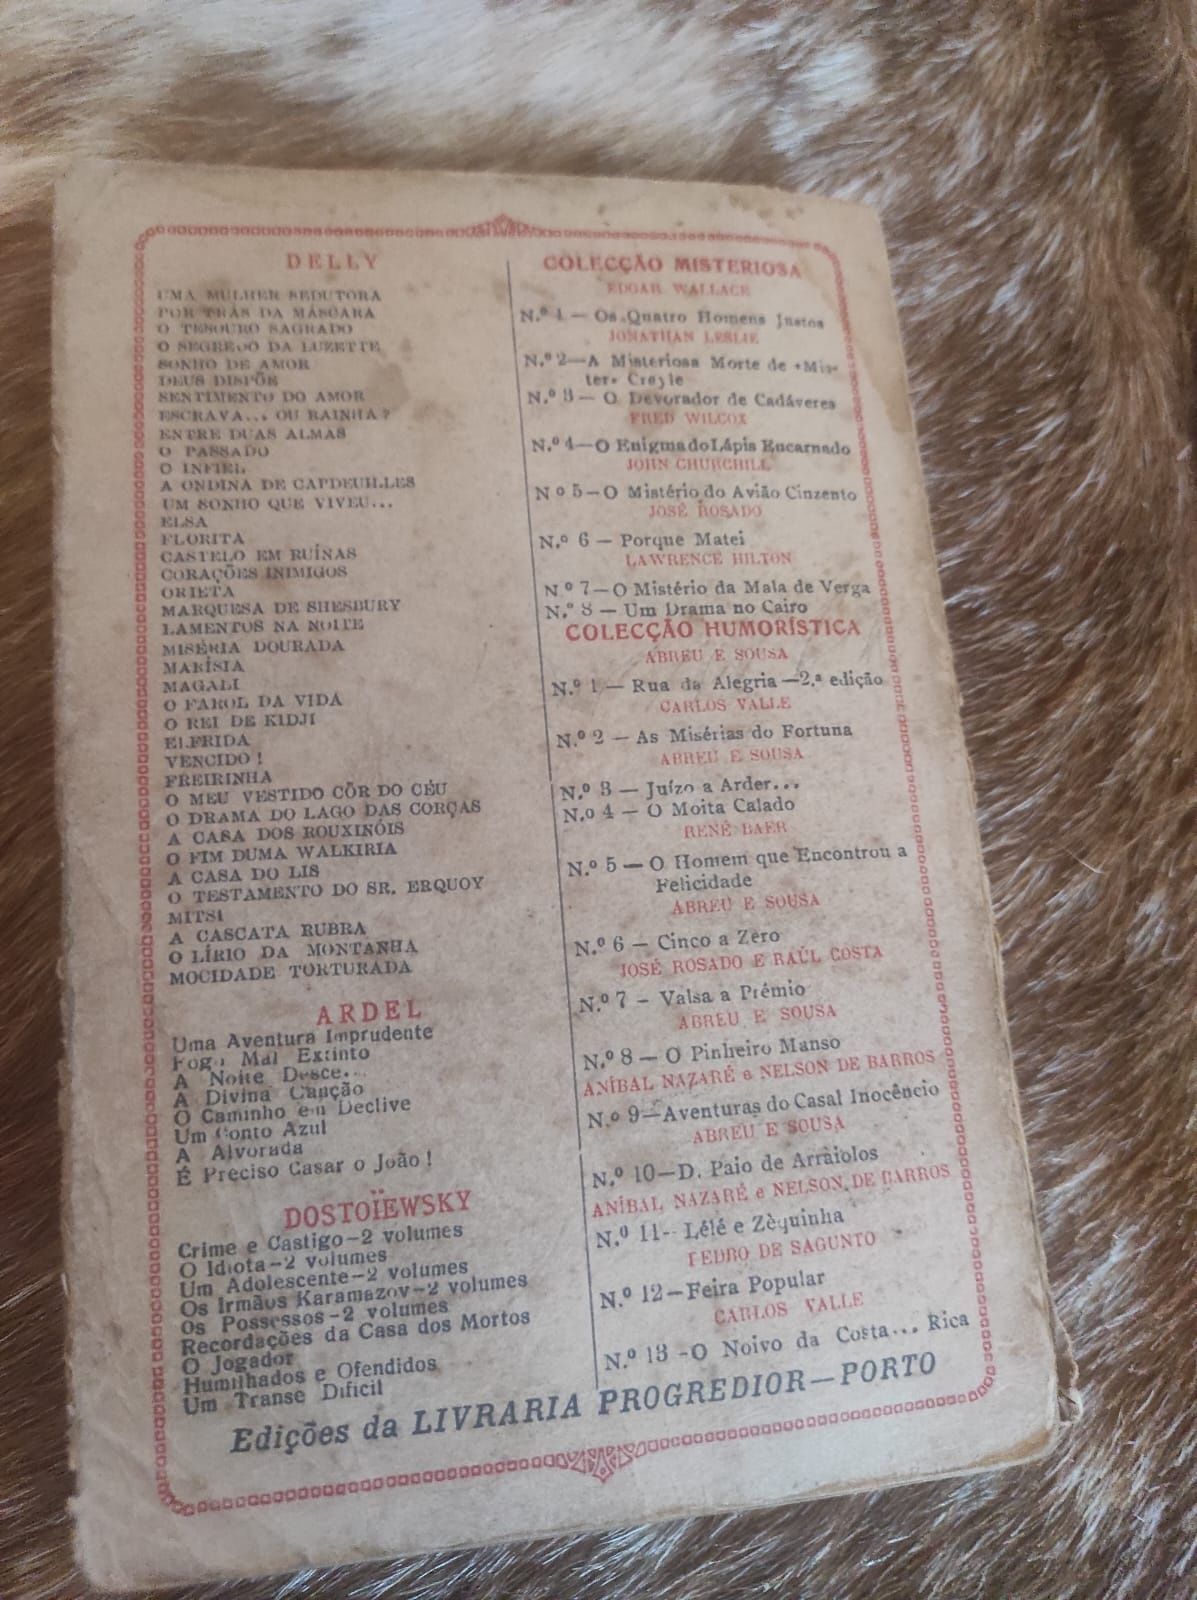 DELLY
UMA MULHER SEDUTORA
POR TRÁS DA MÁSCARA
O TESOURO SAGRADO
O SEGREDO DA LUZETTE
SONHO DE AMOR
DEUS DISPÕE
SENTIMENTO DO AMOR
ESCRAVA... OU RAINHA?
ENTRE DUAS ALMAS
O PASSADO
O INFIEL
A ONDINA DE CAPDEUILLES
UM SONHO QUE VIVEU...
ELSA
FLORITA
CASTELO EM RUÍNAS
CORAÇÕES INIMIGOS
ORIETA
MARQUESA DE SHESBURY
LAMENTOS NA NOITE
MISÉRIA DOURADA
MARÍSIA
MAGALI
O FAROL DA VIDA
O REI DE KIDJI
ELFRIDA
VENCIDO!
FREIRINHA
O MEU VESTIDO CÔR DO CÉU
O DRAMA DO LAGO DAS CORÇAS
A CASA DOS ROUXINÓIS
O FIM DUMA WALKIRIA
A CASA DO LIS
O TESTAMENTO DO SR. ERQUOY
MITSI
A CASCATA RUBRA
O LÍRIO DA MONTANHA
MOCIDADE TORTURADA
ARDEL
Uma Aventura Imprudente
Fogo Mal Extinto
A Noite Desce...
A Divina Canção
O Caminho em Declive
Um Conto Azul
A Alvorada
É Preciso Casar o João!
DOSTOÏEWSKY
Crime e Castigo-2 volumes
O Idiota-2 volumes
Um Adolescente-2 volumes
Os Irmãos Karamazov-2 volumes
Os Possessos-2 volumes
Recordações da Casa dos Mortos
O Jogador
Humilhados e Ofendidos
Um Transe Difícil
COLECÇÃO MISTERIOSA
EDGAR WALLACE
N.º 1 — Os Quatro Homens Justos
JONATHAN LESLIE
N.º 2—A Misteriosa Morte de «Mis-
ter» Creyle
N.º 3 — O Devorador de Cadáveres
FRED WILCOX
N.º 4—O Enigma do Lápis Encarnado
JOHN CHURCHILL
N.º 5—O Mistério do Avião Cinzento
JOSÉ ROSADO
N.º 6 — Porque Matei
LAWRENCE HILTON
N.º 7—O Mistério da Mala de Verga
N.º 8 — Um Drama no Cairo
COLECÇÃO HUMORÍSTICA
ABREU E SOUSA
N.º 1 — Rua da Alegria —2.ª edição
CARLOS VALLE
N.º 2 — As Misérias do Fortuna
ABREU E SOUSA
N.º 3 — Juízo a Arder...
N.o 4 — O Moita Calado
RENÉ BAER
N.º 5 — O Homem que Encontrou a
Felicidade
ABREU E SOUSA
N.º 6 — Cinco a Zero
JOSÉ ROSADO E RAÚL COSTA
N.º 7 – Valsa a Prémio
ABREU E SOUSA
N.º 8 — O Pinheiro Manso
ANÍBAL NAZARÉ e NELSON DE BARROS
N.º 9—Aventuras do Casal Inocêncio
ABREU E SOUSA
N.º 10—D. Paio de Arraiolos
ANÍBAL NAZARÉ e NELSON DE BARROS
N.º 11-- Lélé e Zèquinha
PEDRO DE SAGUNTO
N.º 12—Feira Popular
CARLOS VALLE
N.º 13 -O Noivo da Costa... Rica
Edições da LIVRARIA PROGREDIOR—PORTO